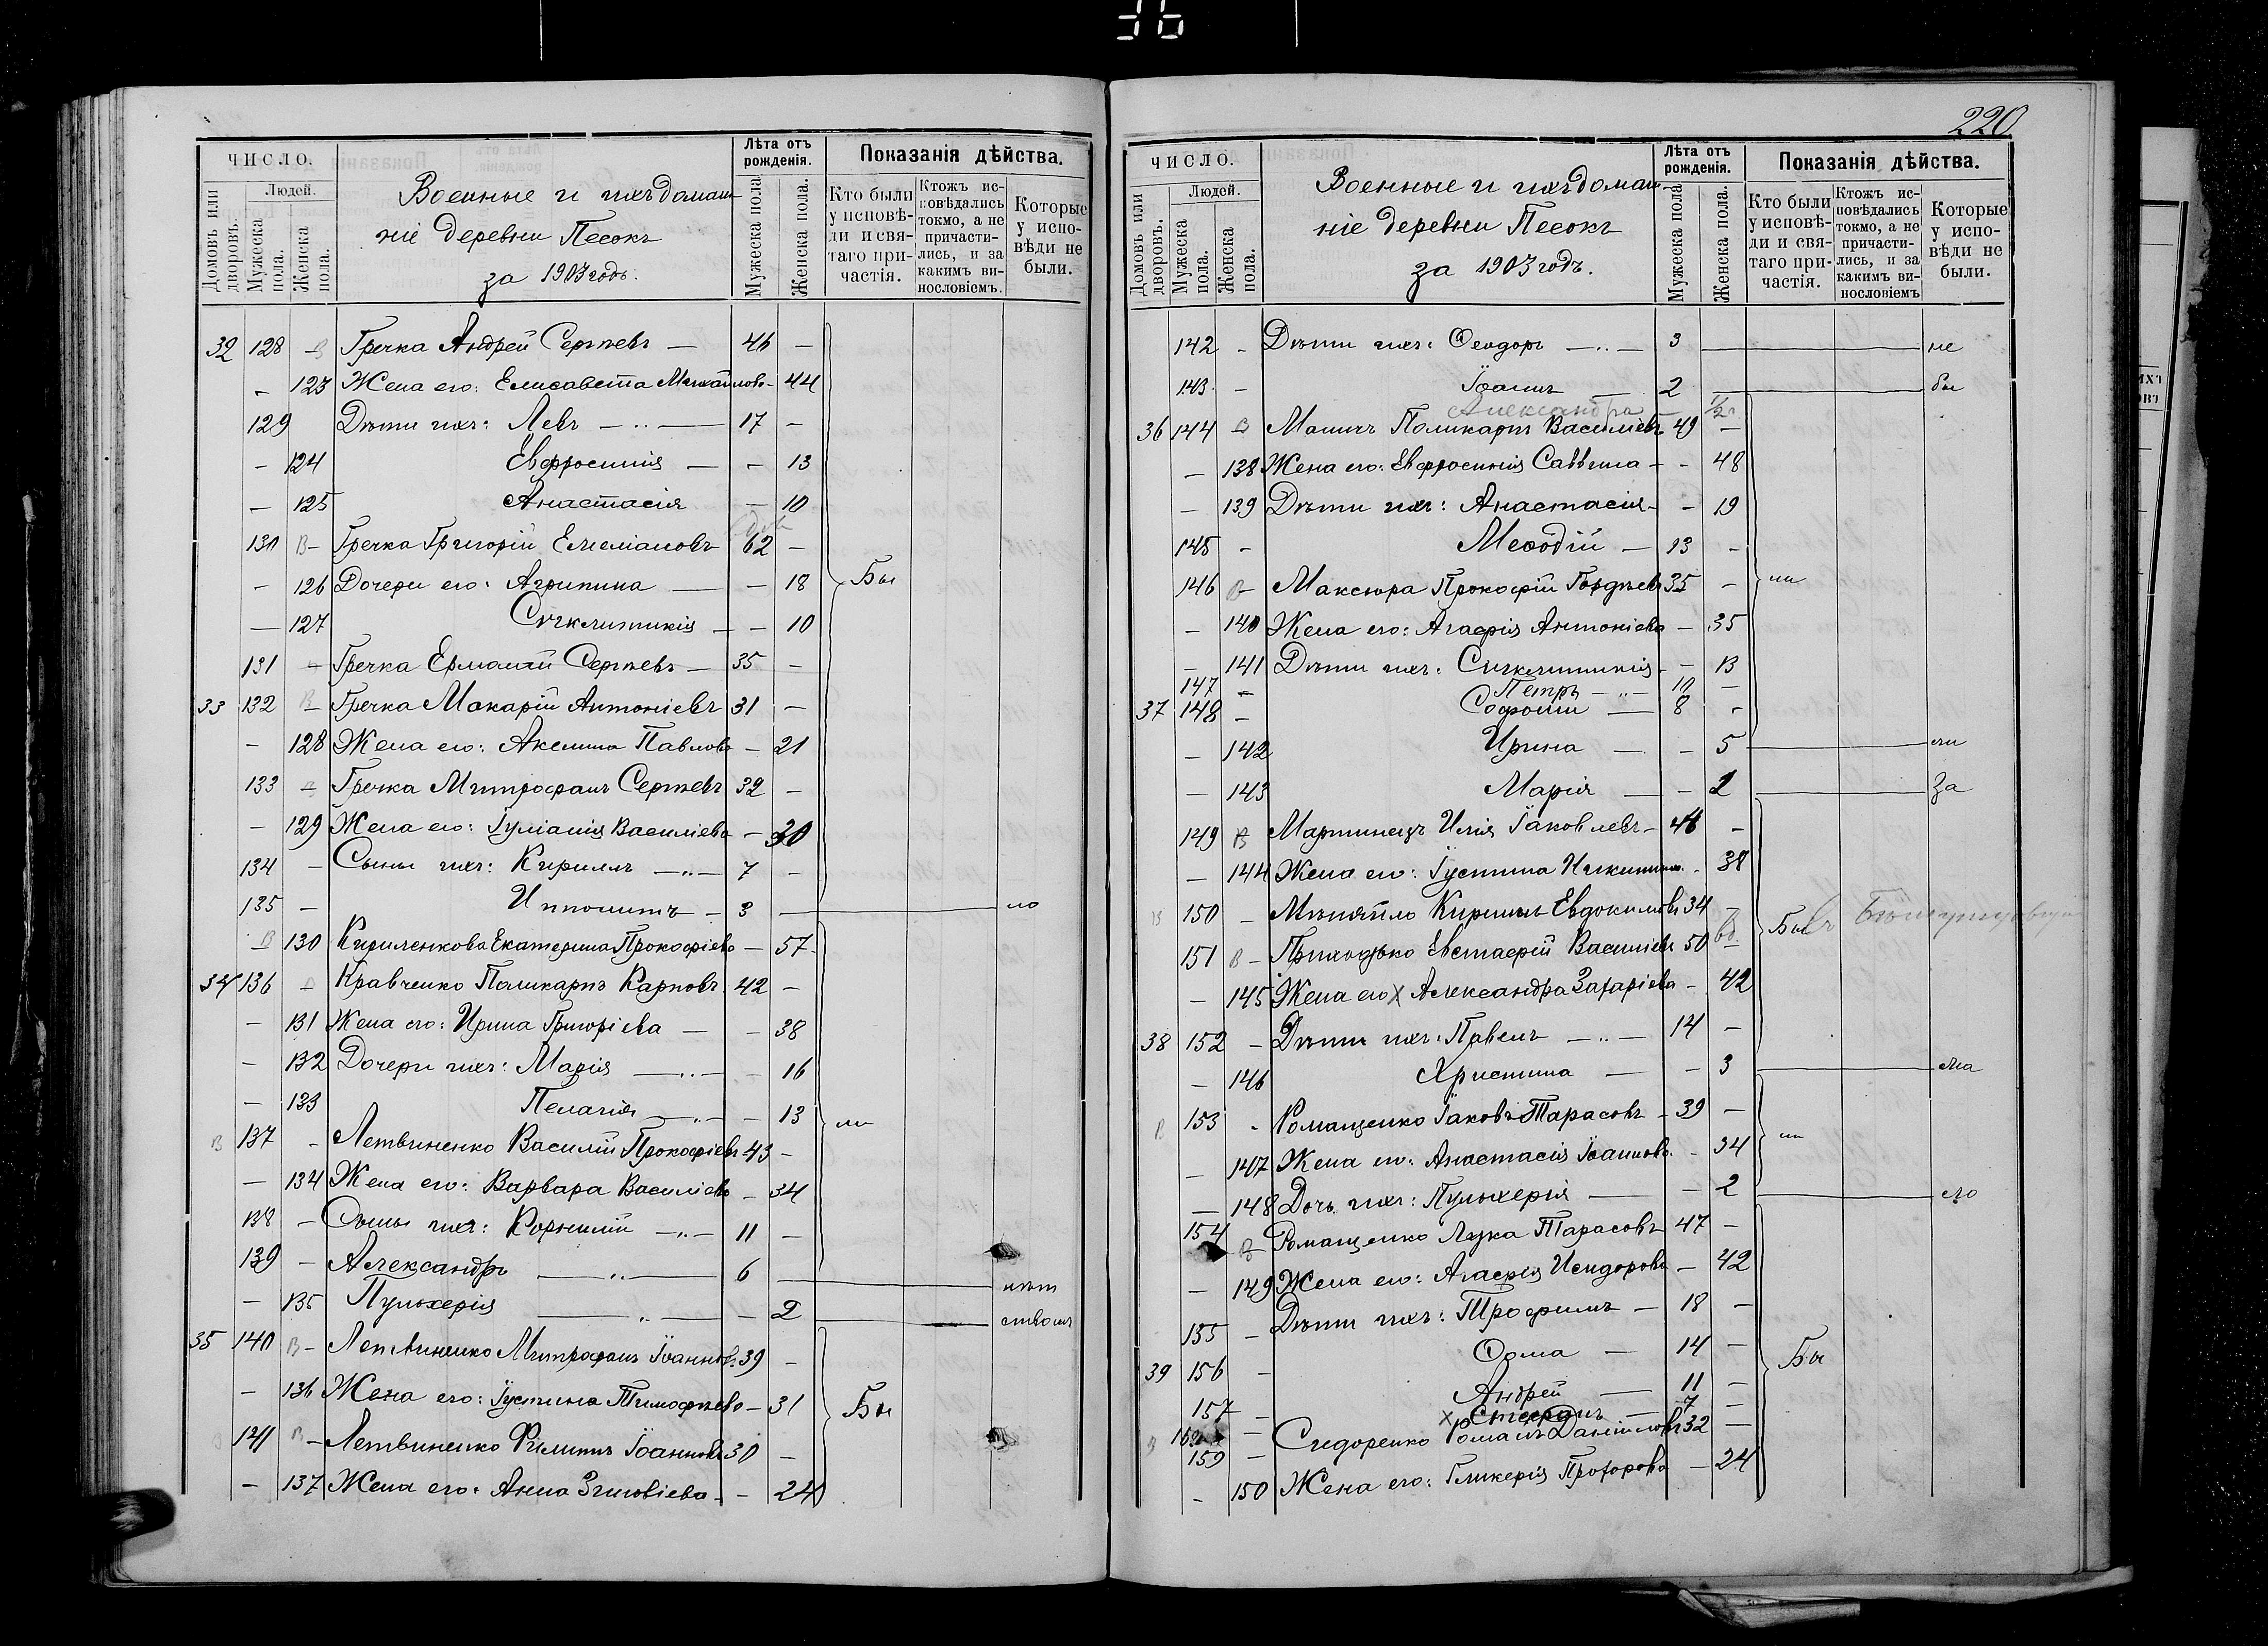 36
ЧИСЛО.
Людей.
Домовъ или дворовъ.
Мужеска пола.
Женска пола.
Военные и ихъ домаш-
ніе деревни Песокъ
за 1903 годъ.
Лѣта отъ рожденія.
Мужеска пола.
Женска пола.
Показанія дѣйства.
Кто были у исповѣ-ди и свя-таго при-частія.
Ктожъ ис-повѣдались токмо, а не причасти-лись, и за какимъ ви-нословіемъ.
Которые у испо-вѣди не были.
32 128 - Гречка Андрей Сергѣевъ — 46 -
- 123 Жена его: Елисавета Михайлова - 44
129 Дѣти ихъ: Левъ — 17 -
- 124 Евфросинія — - 13
- 125 Анастасія - 10
130 В- Гречка Григорій Емеліановъ 62 -
- 126 Дочери его: Агрипина — - 18 Бы
- 127 Сигклитикія — - 10
131 - Гречка Ермолай Сергѣевъ — 35 -
33 132 В- Гречка Макарій Антоніевъ 31 -
- 128 Жена его: Акилина Павлова - 21
133 - Гречка Митрофанъ Сергѣевъ 32 -
- 129 Жена его: Іуліанія Василіева - 30
134 - Сыны ихъ: Кириллъ — 7 -
135 - Ипполитъ - 3 — ло
В 130 Кириленкова Екатерина Прокофіева - 57
34 136 - Кравченко Поликарпъ Карповъ 42 -
- 131 Жена его: Ирина Григоріева — - 38
- 132 Дочери ихъ: Марія — - 16
- 133 Пелагія — - 13 ли
В 137 - Летвиненко Василій Прокофіевъ 43 -
- 134 Жена его: Варвара Василіева - 34
138 - Сыны ихъ: Корнилій — 11 -
139 - Александръ — 6 — мѣт
- 135 Пульхерія — - 2 — ствомъ
35 140 В- Летвиненко Митрофанъ Іоанновъ 39 -
- 136 Жена его: Іустина Тимофѣева - 31 Бы
141 В- Летвиненко Филиппъ Іоанновъ 30 -
- 137 Жена его: Анна Зиновіева - - 24
220
ЧИСЛО.
Людей.
Домовъ или дворовъ.
Мужеска пола.
Женска пола.
Военные и ихъ домаш-
ніе деревни Песокъ
за 1903 годъ.
Лѣта отъ рожденія.
Мужеска пола.
Женска пола.
Показанія дѣйства.
Кто были у исповѣ-ди и свя-таго при-частія.
Ктожъ ис-повѣдались токмо, а не причасти-лись, и за какимъ ви-нословіемъ
Которые у испо-вѣди не были.
142 - Дѣти ихъ: Ѳеодоръ — 3 — не
143 - Іоаннъ — 2 — бы
Александра 1/2
36 144 В Поликарпъ Василіевъ 49 -
- 138 Жена его: Евфросинія Саввина - - 48
- 139 Дѣти ихъ: Анастасія - - 19
145 - Меѳодій — 13 -
146 В- Максюра Прокофій Гордѣевъ 35 - ли
- 140 Жена его: Агафія Антоніева - 35
- 141 Дѣти ихъ: Сигклитикія - - 13
147 - Петръ — 10 -
37 148 - Софоній — 8 -
- 142 Ирина — - 5 — ли
- 143 Марія — - 2 — За
149 В Мартинецъ Илія Іаковлевъ - 46 -
- 144 Жена его: Іустина Никитина - 38
В 150 - Миняйло Кириллъ Евдокимовъ 34 -
Бы
151 В- Приходько Евстафій Василіевъ 50 вд.
- 145 Жена его Х Александра Захаріева - 42
38 152 - Дѣти ихъ: Павелъ — 14 -
- 146 Христина — - 3 — ма
В 153 - Ромащенко Іаковъ Тарасовъ - 39 -
- 147 Жена его: Анастасія Іоаннова - 34 ли
- 148 Дочь ихъ: Пульхерія — - 2 — ло
154 В- Ромащенко Лука Тарасовъ 47 -
- 149 Жена его: Агафія Исидорова - 42
155 - Дѣти ихъ: Трофимъ — 18 -
39 156 - Ѳома — 14 - Бы
157 - Андрей — 11 -
158 - х Стефанъ — 7 -
В 159 - Сидоренко Романъ Даніиловъ 32 -
- 150 Жена его: Гликерія Прохорова - 24